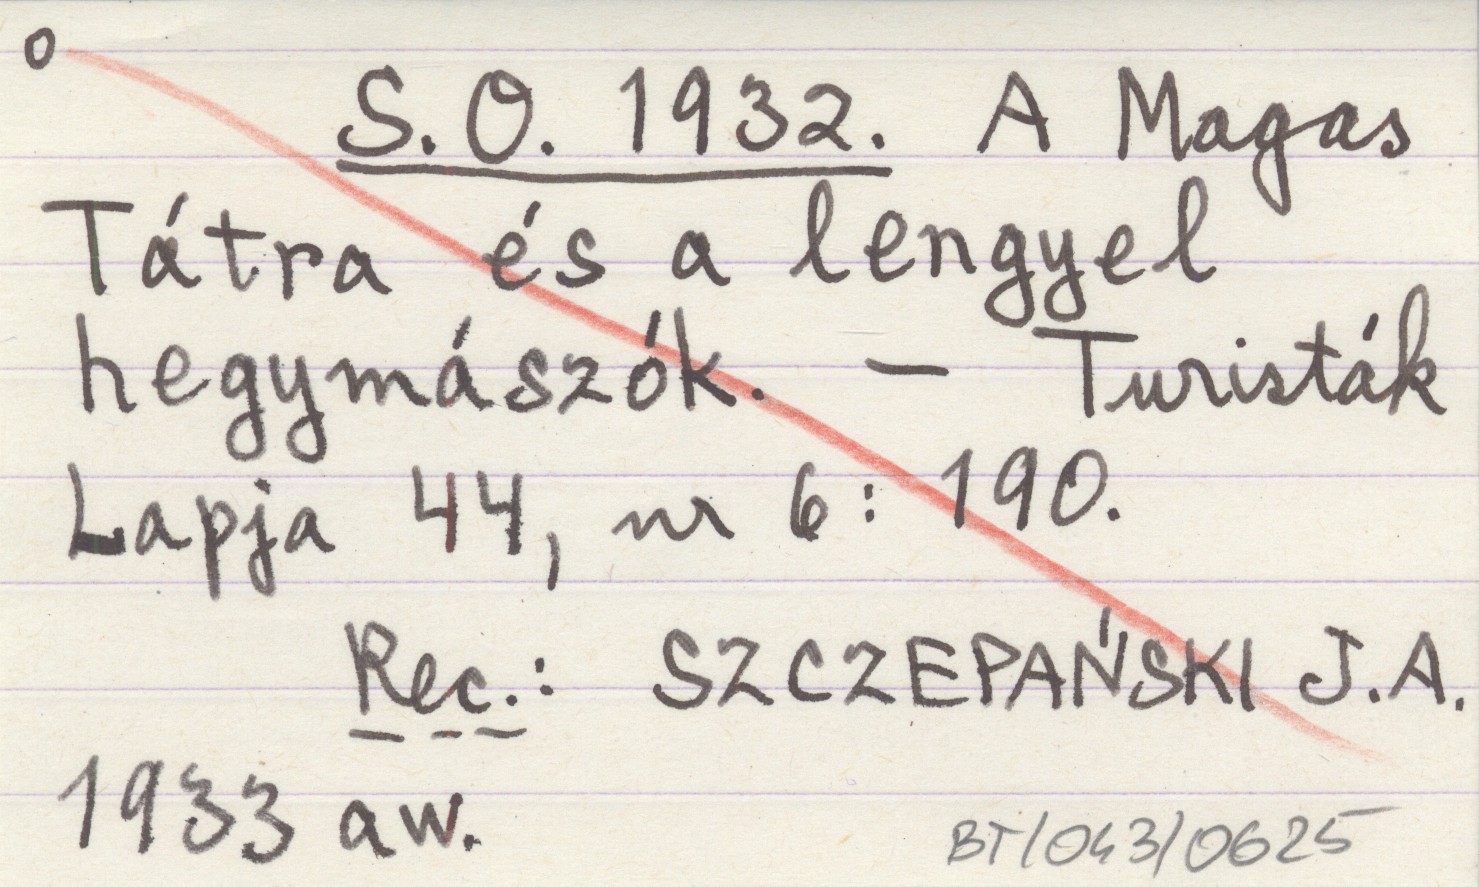 o
S.O. 1932. A Magas
Tátra és a lengyel
hegymászók. — Turisták
Lapja 44, nr 6: 190.
Rec.: SZCZEPAŃSKI J.A.
1933 aw.
BT/043/0625